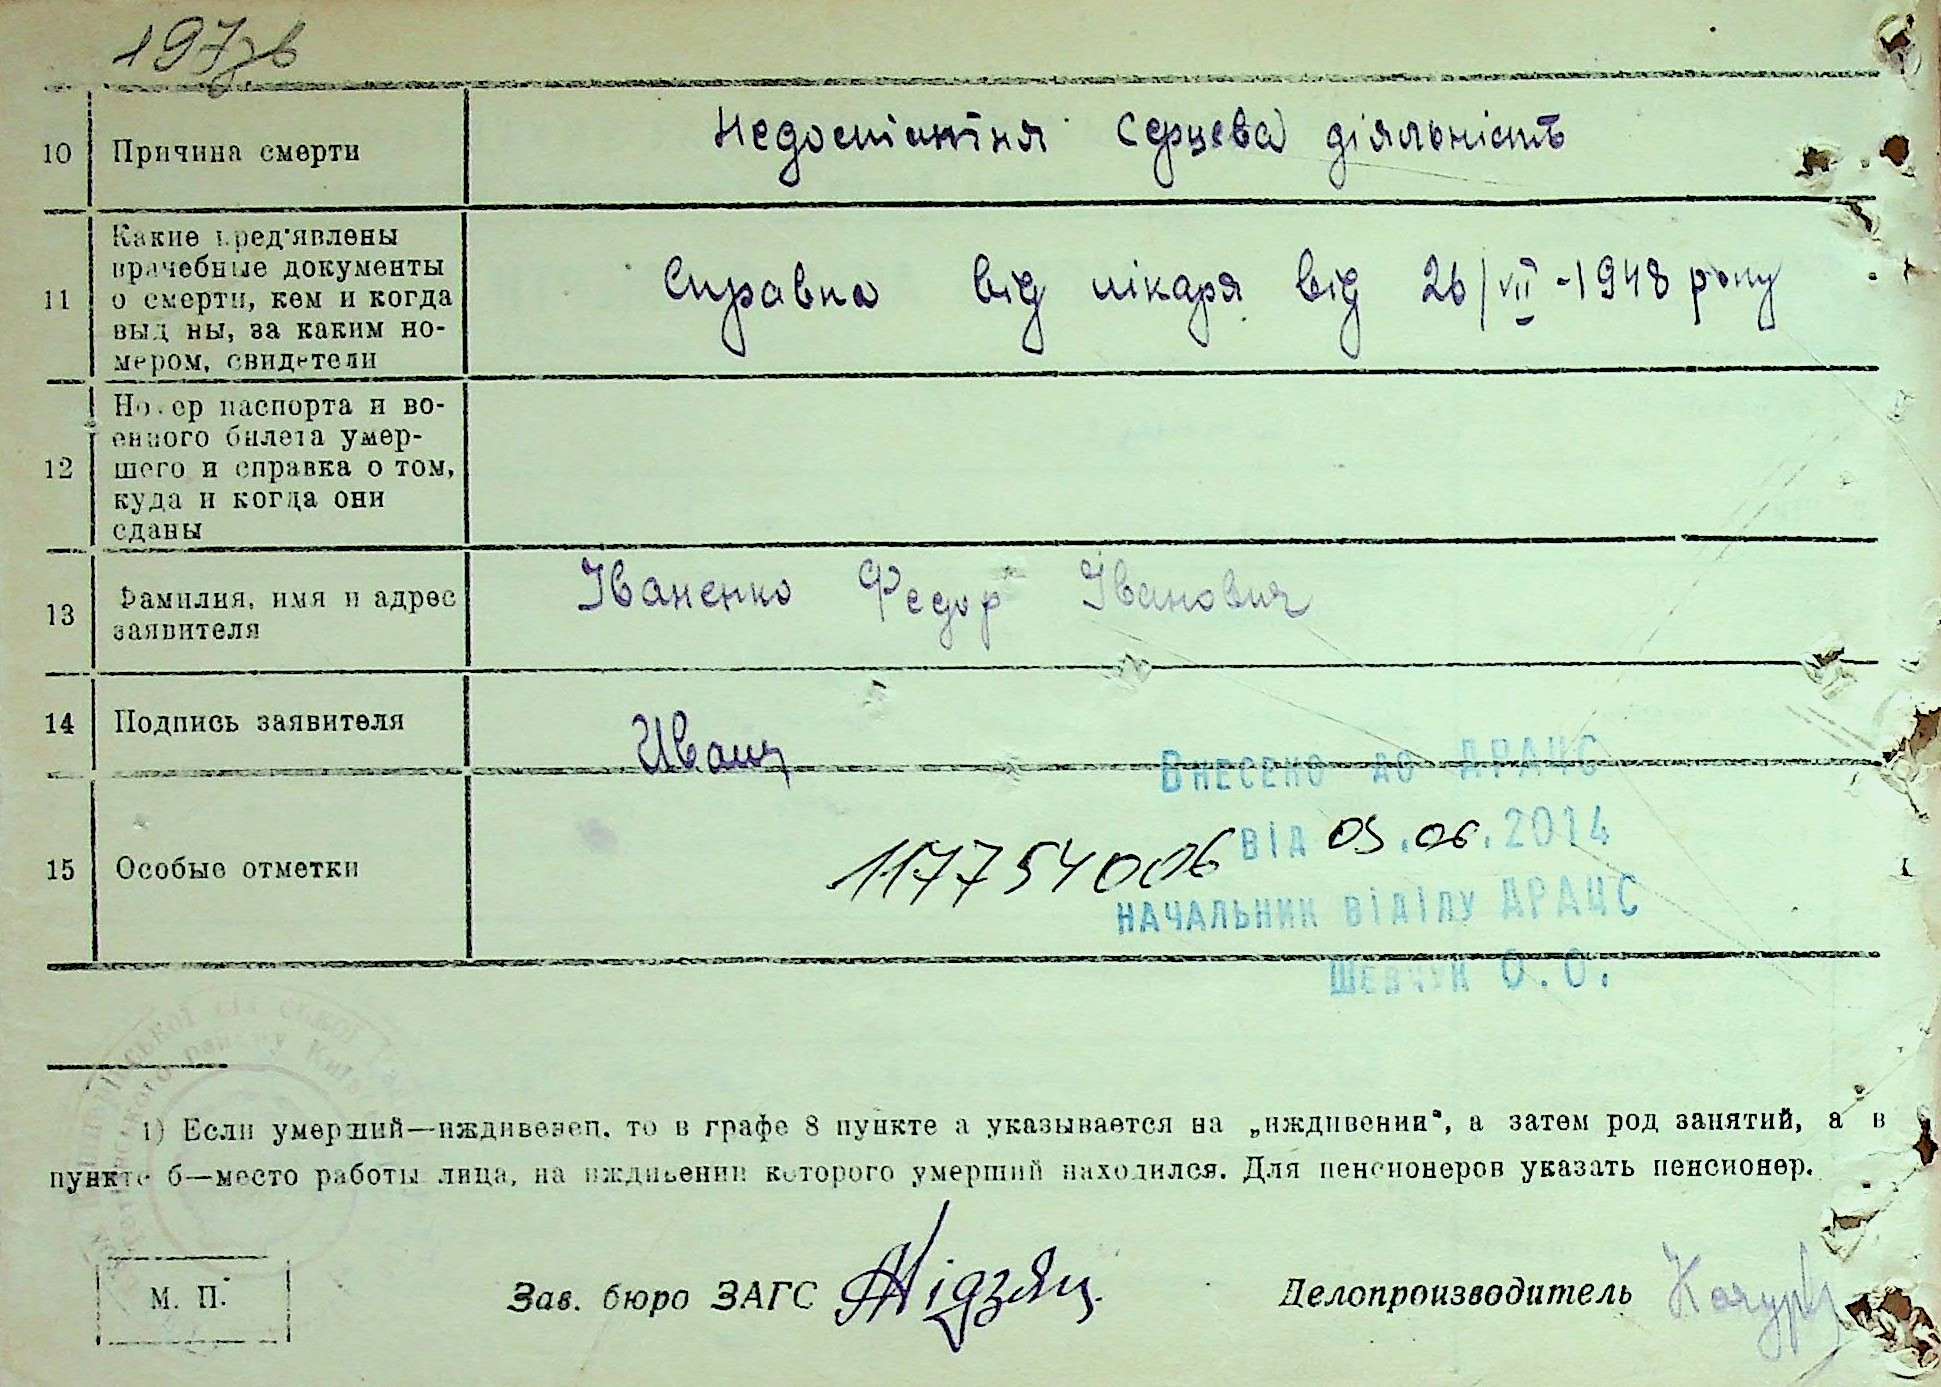 197зв
10 Причина смерти
Недостіпніня Серцева діяльність
11 Какие пред'явлены
врачебные документы
о смерти, кем и когда
выданы, за каким но-
мером, свидетели
Справка від лікаря від 26/VII-1948 року
12 Номер паспорта и во-
енного билета умер-
шего и справка о том,
куда и когда они
сданы
13 Фамилия, имя и адрес
заявителя
Іваненко Федор Іванович
14 Подпись заявителя
Иван
Внесено до ДРАЦС
117754006 від 05.06.2014
15 Особые отметки
начальник відділу ДРАЦС
Шевчук О.О.
1) Если умерший—иждивенец, то в графе 8 пункте а указывается на „иждивении“, а затем род занятий, а в
пункте б—место работы лица, на иждивении которого умерший находился. Для пенсионеров указать пенсионер.
М. П.
Зав. бюро ЗАГС
Делопроизводитель